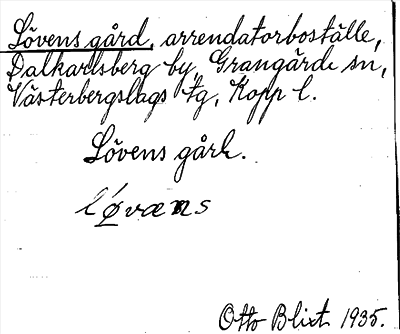 Lövens gård, arrendatorboställe,
Dalkarlsberg by, Grangärde sn,
Västerbergslags tg, Kopp l.
Lövens gård.
lǿvæns
Otto Blixt 1935.